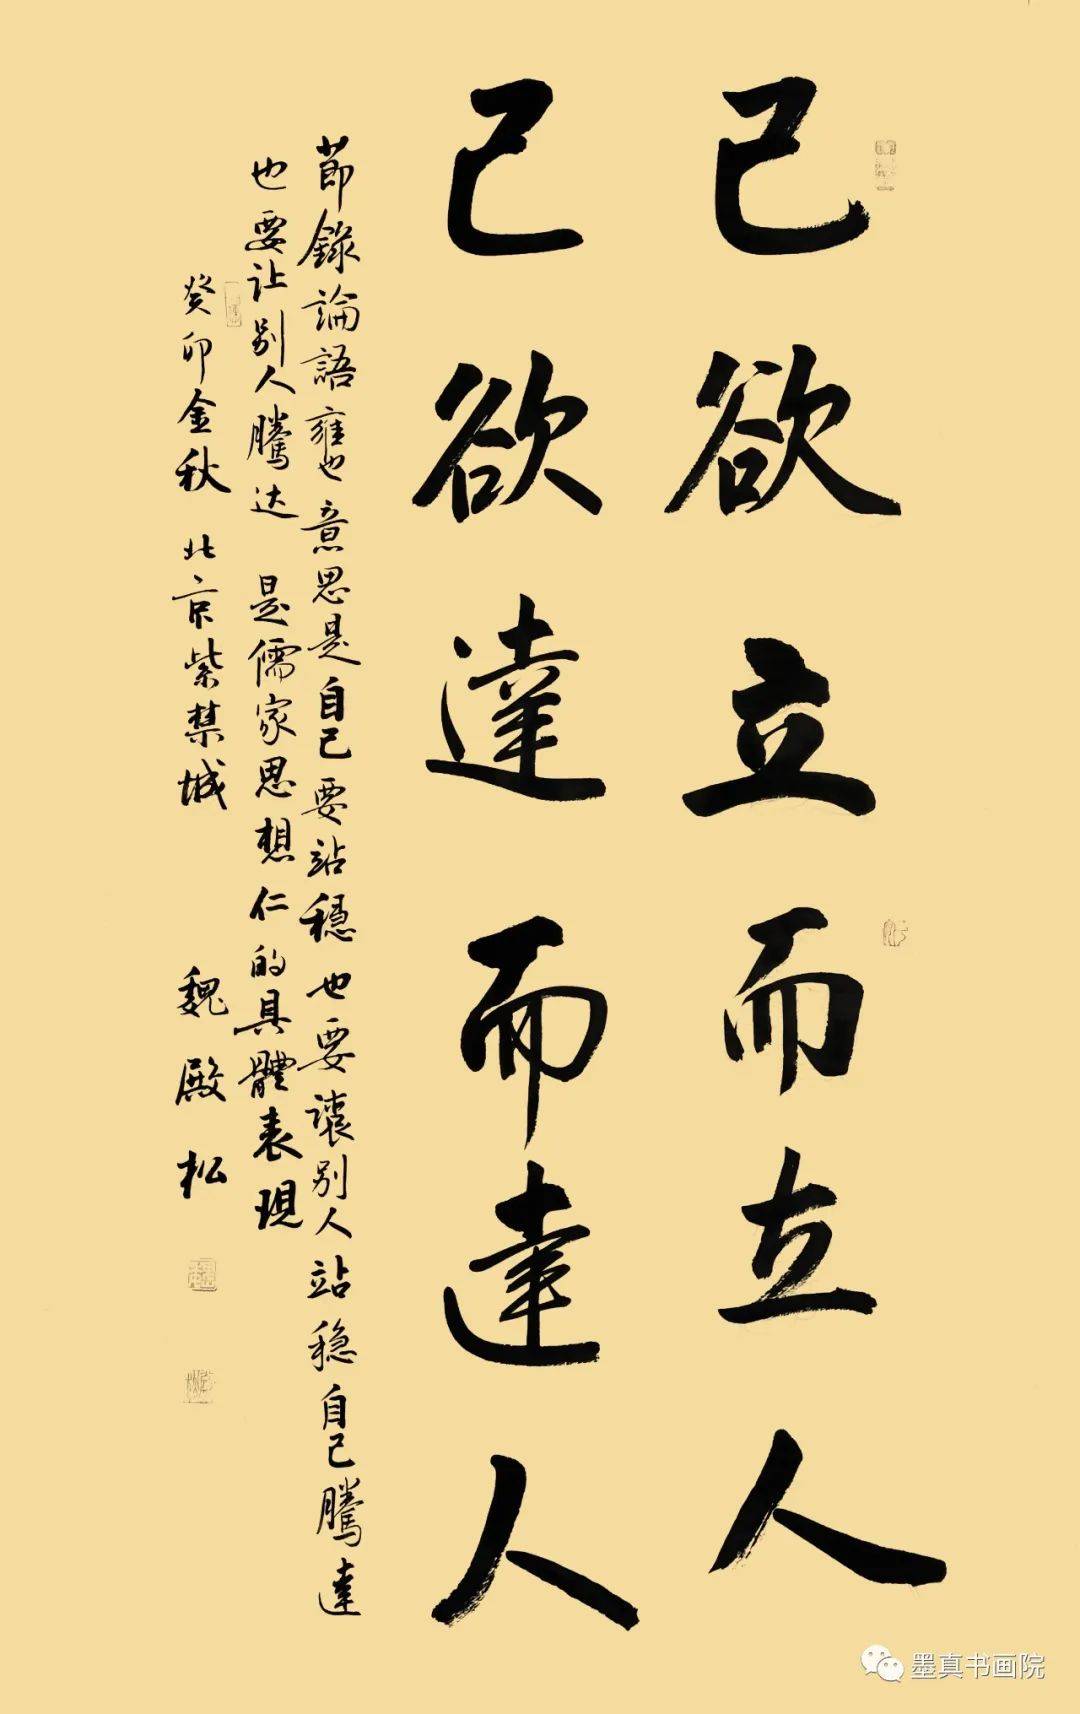 己欲立而立人
己欲達而達人
節錄論語雍也意思是自己要站穩也要讓别人站稳自己騰達
也要让别人騰达是儒家思想仁的具體表現
癸卯金秋北京紫禁城魏殿松
墨真书画院